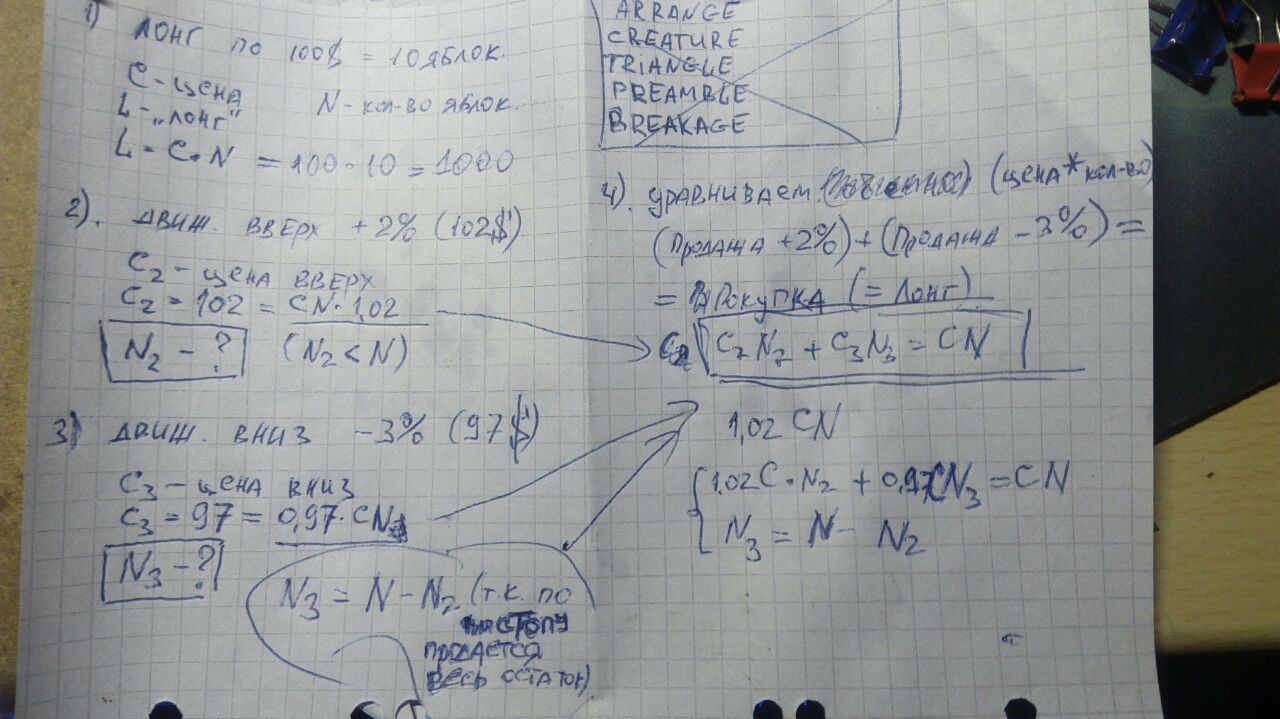 1) ЛОНГ ПО 100$ = 10 ЯБЛОК.
C - ЦЕНА
L - „ЛОНГ" N - КОЛ-ВО ЯБЛОК.
L = C · N = 100 · 10 = 1000
2). ДВИЖ. ВВЕРХ +2% (102$)
C₂ - ЦЕНА ВВЕРХ
C₂ = 102 = CN · 1,02
N₂ - ? (N₂ < N)
3) ДВИЖ. ВНИЗ -3% (97$)
C₃ - ЦЕНА ВНИЗ
C₃ = 97 = 0,97 · CN
N₃ - ?
N₃ = N - N₂ (Т.К. ПО
СТОПУ
ПРОДАЕТСЯ
ВЕСЬ ОСТАТОК)
ARRANGE
CREATURE
TRIANGLE
PREAMBLE
BREAKAGE
4). УРАВНИВАЕМ (ЦЕНА * КОЛ-ВО)
(ПРОДАЖА +2%) + (ПРОДАЖА -3%) =
= ПОКУПКА (= ЛОНГ)
C₂N₂ + C₃N₃ = CN
1,02 CN
1,02C · N₂ + 0,97CN₃ = CN
N₃ = N - N₂